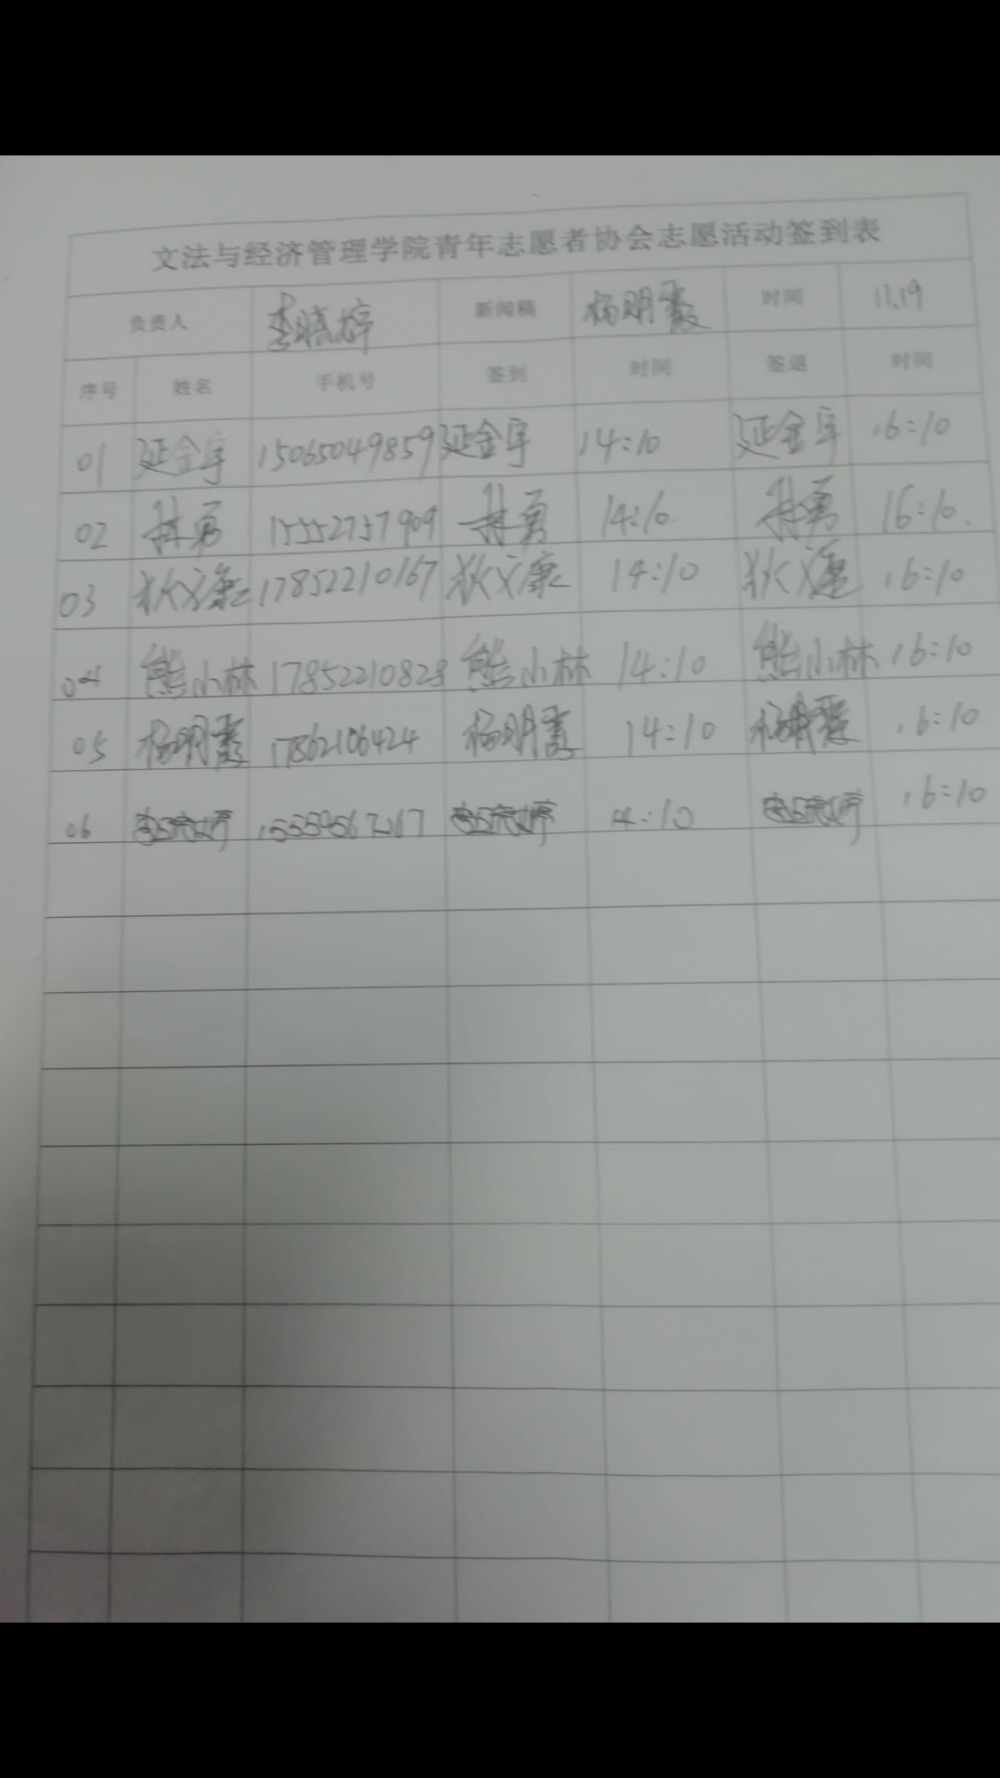 文法与经济管理学院青年志愿者协会志愿活动签到表
负责人 新闻稿 杨明霞 时间 11.19
序号 姓名 手机号 签到 时间 签退 时间
01 延金宇 15065049859 延金宇 14:10 延金宇 16:10
02 林勇 15552757909 林勇 14:10 林勇 16:10.
03 狄文康 17852210167 狄文康 14:10 狄文康 16:10
04 熊小林 17852210828 熊小林 14:10 熊小林 16:10
05 杨明霞 17862106424 杨明霞 14:10 杨明霞 16:10
06 14:10 16:10